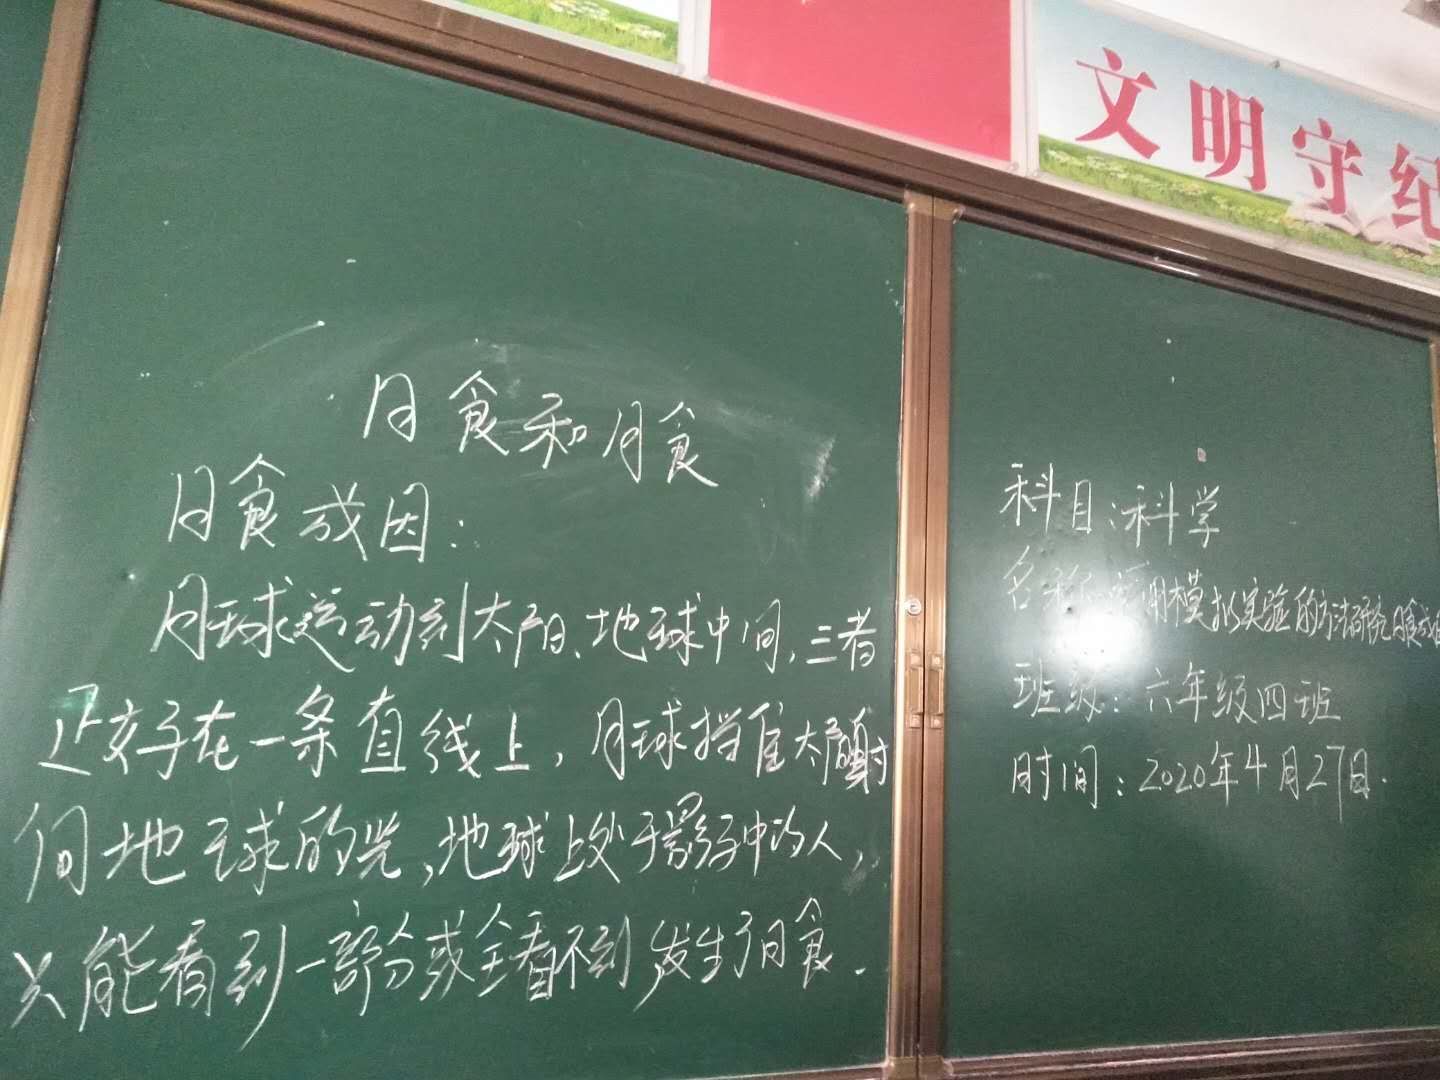 文明守纪
日食和月食
日食成因：
月球运动到太阳、地球中间，三者
正好在一条直线上，月球挡住太阳射
向地球的光，地球上处于影子中的人，
只能看到一部分或全看不到，发生了日食.
科目：科学
名称：应用模拟实验的方法研究日食成因
班级：六年级四班
时间：2020年4月27日.